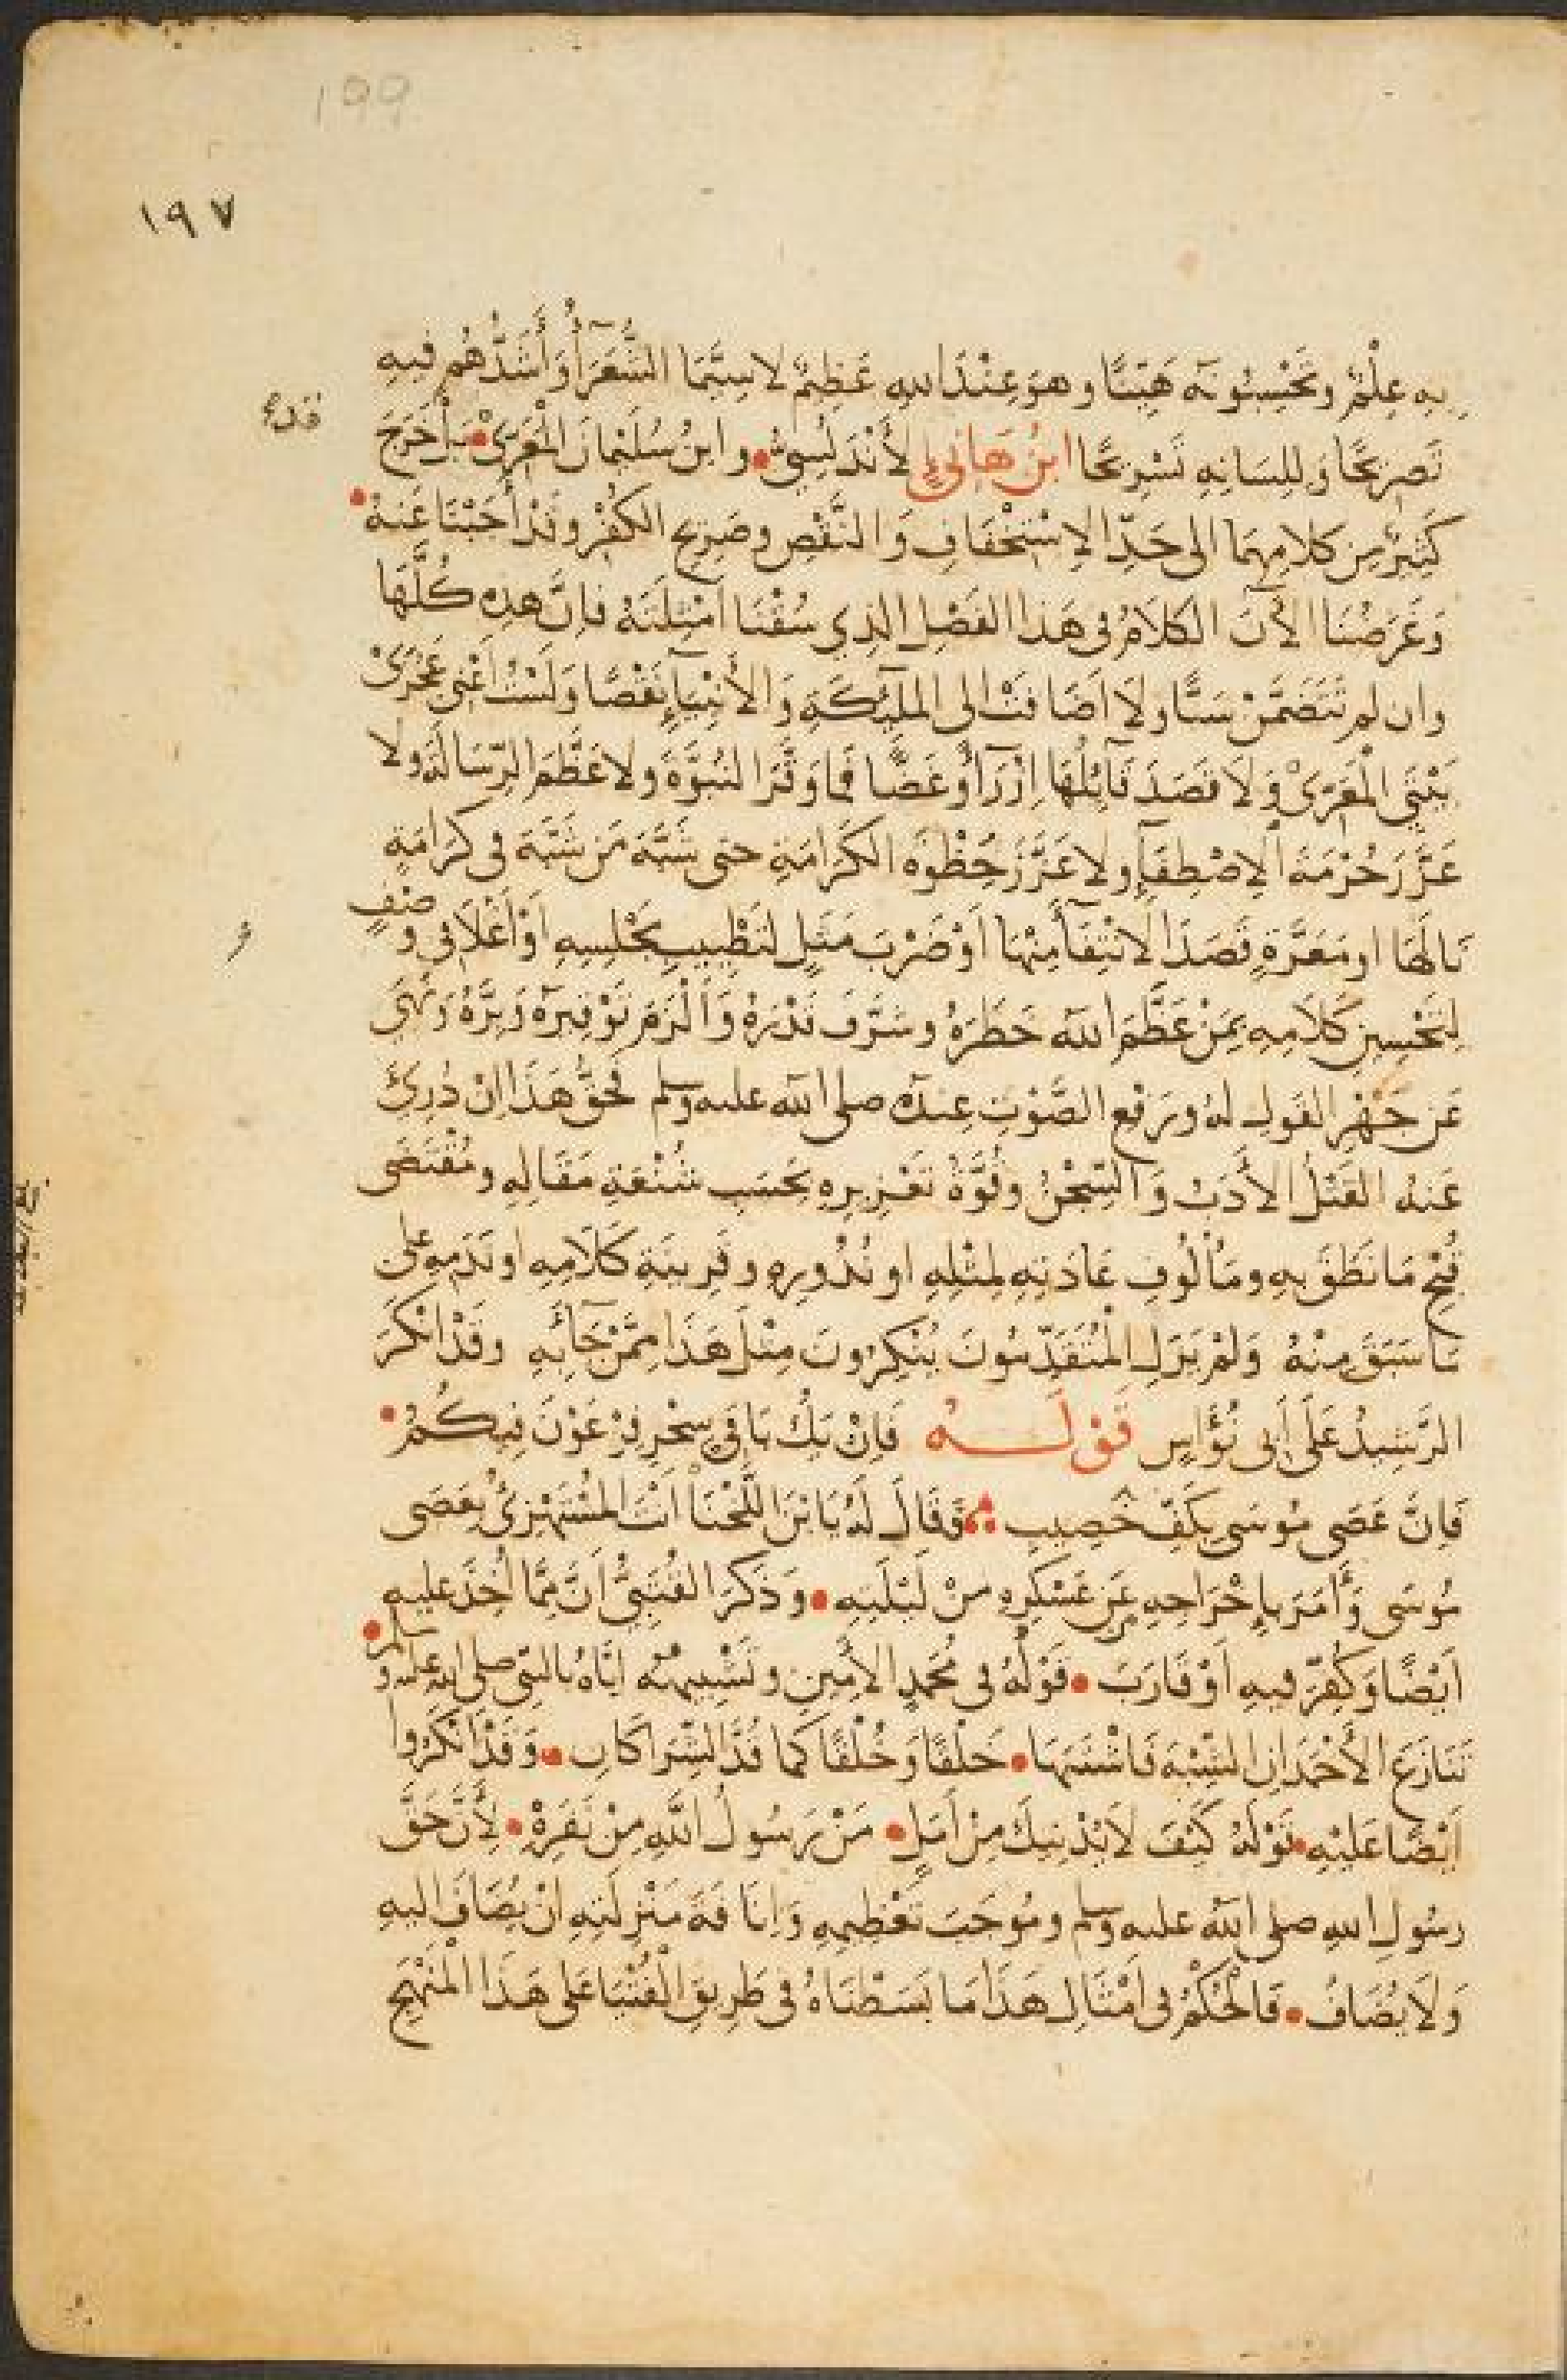 199
١٩٧
بِهِ عِلْمٌ وَتَحْسِبُونَهُ هَيِّنًا وهوَ عِنْدَ اللهِ عَظِيمٌ لا سِيَّمَا الشُّعَرَآءُ وَأَشَدُّهُم فيهِ
تَصْرِيحًا وَلِلِسَانِهِ تَسْرِيحًا ابنُ هَانِي الأَنْدَلُسِيُّ وابنُ سُلَيْمَانَ المَعَرِيُّ بَلْ خَرَجَ
كَثِيرٌ مِن كلامِهِمَا الى حَدِّ الاِسْتِخْفَافِ وَالنَّقْصِ وصَرِيحِ الكُفْرِ وقَدْ أَجَبْنَا عَنهُ
وَغَرَضُنَا الآنَ الكلامُ فى هَذا الفَصْلِ الذِي سُقْنَا اَمْثِلَتَهُ فاِنَّ هذِه كُلَّهَا
وان لم تَتَضَمَّنْ سَبًّا ولَا اَضَافَتْ الى المَلٓئِكَةِ وَالأَنْبِيَآءِ نَقْصًا وَلَسْتُ اَعْنِي عَجُزَيْ
بَيْتَيِ الْمَعَرِيِّ وَلَا قَصَدَ قَآئِلُهَا اِزْرَآءً وَغَضًّا فَمَا وَقَّرَ النُبُوَّةَ ولا عَظَّمَ الرِّسَالَةَ ولا
عَزَّرَ حُرْمَةَ الاِصْطِفَآءِ ولا عَزَّزَ حُظْوَةَ الكَرَامَةِ حتى شَبَّهَ مَن شَبَّهَ فى كَرَامَةٍ
نَالَهَا او مَعَرَّةٍ قَصَدَ الاِنْتِفَآءَ مِنْهَا اَوْ ضَرْبَ مَثَلٍ لتَطْيِيبِ مَجْلِسِهِ اَوْ اَغْلَآءٍ فى وَصْفٍ
لِتَحْسِينِ كَلَامِهِ بِمَنْ عَظَّمَ اللهُ خَطَرَهُ وشَرَّفَ قَدْرَهُ وَاَلْزَمَ تَوْقِيرَهُ وَبِرَّهُ وَنَهَى
عَن جَهْرِ القَولِ لهُ ورَفْعِ الصَّوْتِ عِندَهُ صلى الله عليه وسلم فَحَقُّ هَذَا اِنْ دُرِئَ
عَنهُ القَتْلُ الأَدَبُ وَالسِّجْنُ وقُوَّةُ تَعْزِيرِهِ بحَسَبِ شُنْعَةِ مَقَالِهِ ومُقْتَضَى
قُبْحِ مَا نَطَقَ بِهِ ومَأْلُوفِ عَادَتِهِ لِمِثْلِهِ او نُدُورِهِ وقَرِينَةِ كَلَامِهِ او نَدَمِهِ على
مَا سَبَقَ مِنْهُ وَلَمْ يَزَلِ الْمُتَقَدِّمُونَ يُنْكِرُونَ مِثْلَ هَذَا مِمَّنْ جَآءَ بِهِ وقَدْ اَنْكَرَ
الرَّشِيدُ عَلَى اَبى نُوَاسٍ قَوْلَهُ فَاِنْ يَكُ بَاقِي سِحْرِ فِرْعَوْنَ فيكُمُ
فَاِنَّ عَصَى مُوسَى بِكَفِّ خَصِيبِ فقَالَ لَهُ يَا بْنَ اللَّخْنَآءِ اَنْتَ الْمُسْتَهْزِئُ بِعَصَى
مُوسَى وَأَمَرَ بِاِخْرَاجِهِ عَن عَسْكَرِهِ مِنْ لَيْلَتِهِ وَذَكَرَ القُتَيْبِيُّ اَنَّ مِمَّا اُخِذَ عليهِ
اَيْضًا وَكُفِّرَ فيهِ اَوْ قَارَبَ قَوْلُهُ فى مُحَمدٍ الأَمِينِ وتَشْبِيهِهِ اِيَّاهُ بالنبى صلى الله عليه وسلم
تَنَازَعَ الأَحْمَدَانِ الشِّبْهَ فَاشْتَبَهَا خَلْقًا وَخُلْقًا كَمَا قُدَّ الشِّرَاكَانِ وَقَدْ اَنْكَرُوا
اَيْضًا عَلَيْهِ قَوْلَهُ كَيْفَ لَا يُدْنِيكَ مِنْ اَمَلٍ مَنْ رَسُولُ اللَّهِ مِنْ نَفَرِهْ لأَنَّ حَقَّ
رسُولِ اللهِ صلى اللهُ عليه وسلم ومُوجَبَ تَعْظِيمِهِ وَاِنَافَةَ مَنْزِلَتِهِ اَنْ يُضَافَ اليهِ
وَلَا يُضَافُ فَالْحُكْمُ فى اَمْثَالِ هَذَا مَا بَسَطْنَاهُ فى طَرِيقِ الْفُتْيَا عَلى هَذَا الْمَنْهَجِ